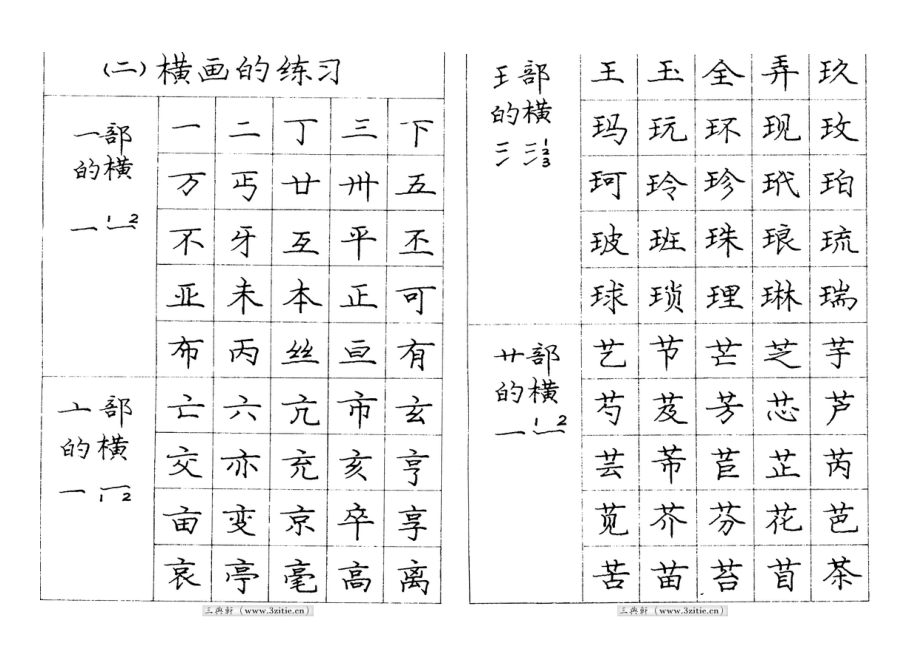 (二)横画的练习
一部的横
一 二 丁 三 下
万 丐 廿 卅 五
不 牙 互 平 丕
亚 未 本 正 可
布 丙 丝 亘 有
亠部的横
亡 六 亢 市 玄
交 亦 充 亥 亨
亩 变 京 卒 享
哀 亭 毫 高 离
三典轩(www.3zitie.cn)
王部的横
王 玉 全 弄 玖
玛 玩 环 现 玫
珂 玲 珍 玳 珀
玻 班 珠 琅 琉
球 琐 理 琳 瑞
艹部的横
艺 节 芒 芝 芋
芍 芨 芳 芯 芦
芸 芾 苣 芷 芮
苋 芥 芬 花 芭
苦 苗 苔 苜 茶
三典轩(www.3zitie.cn)